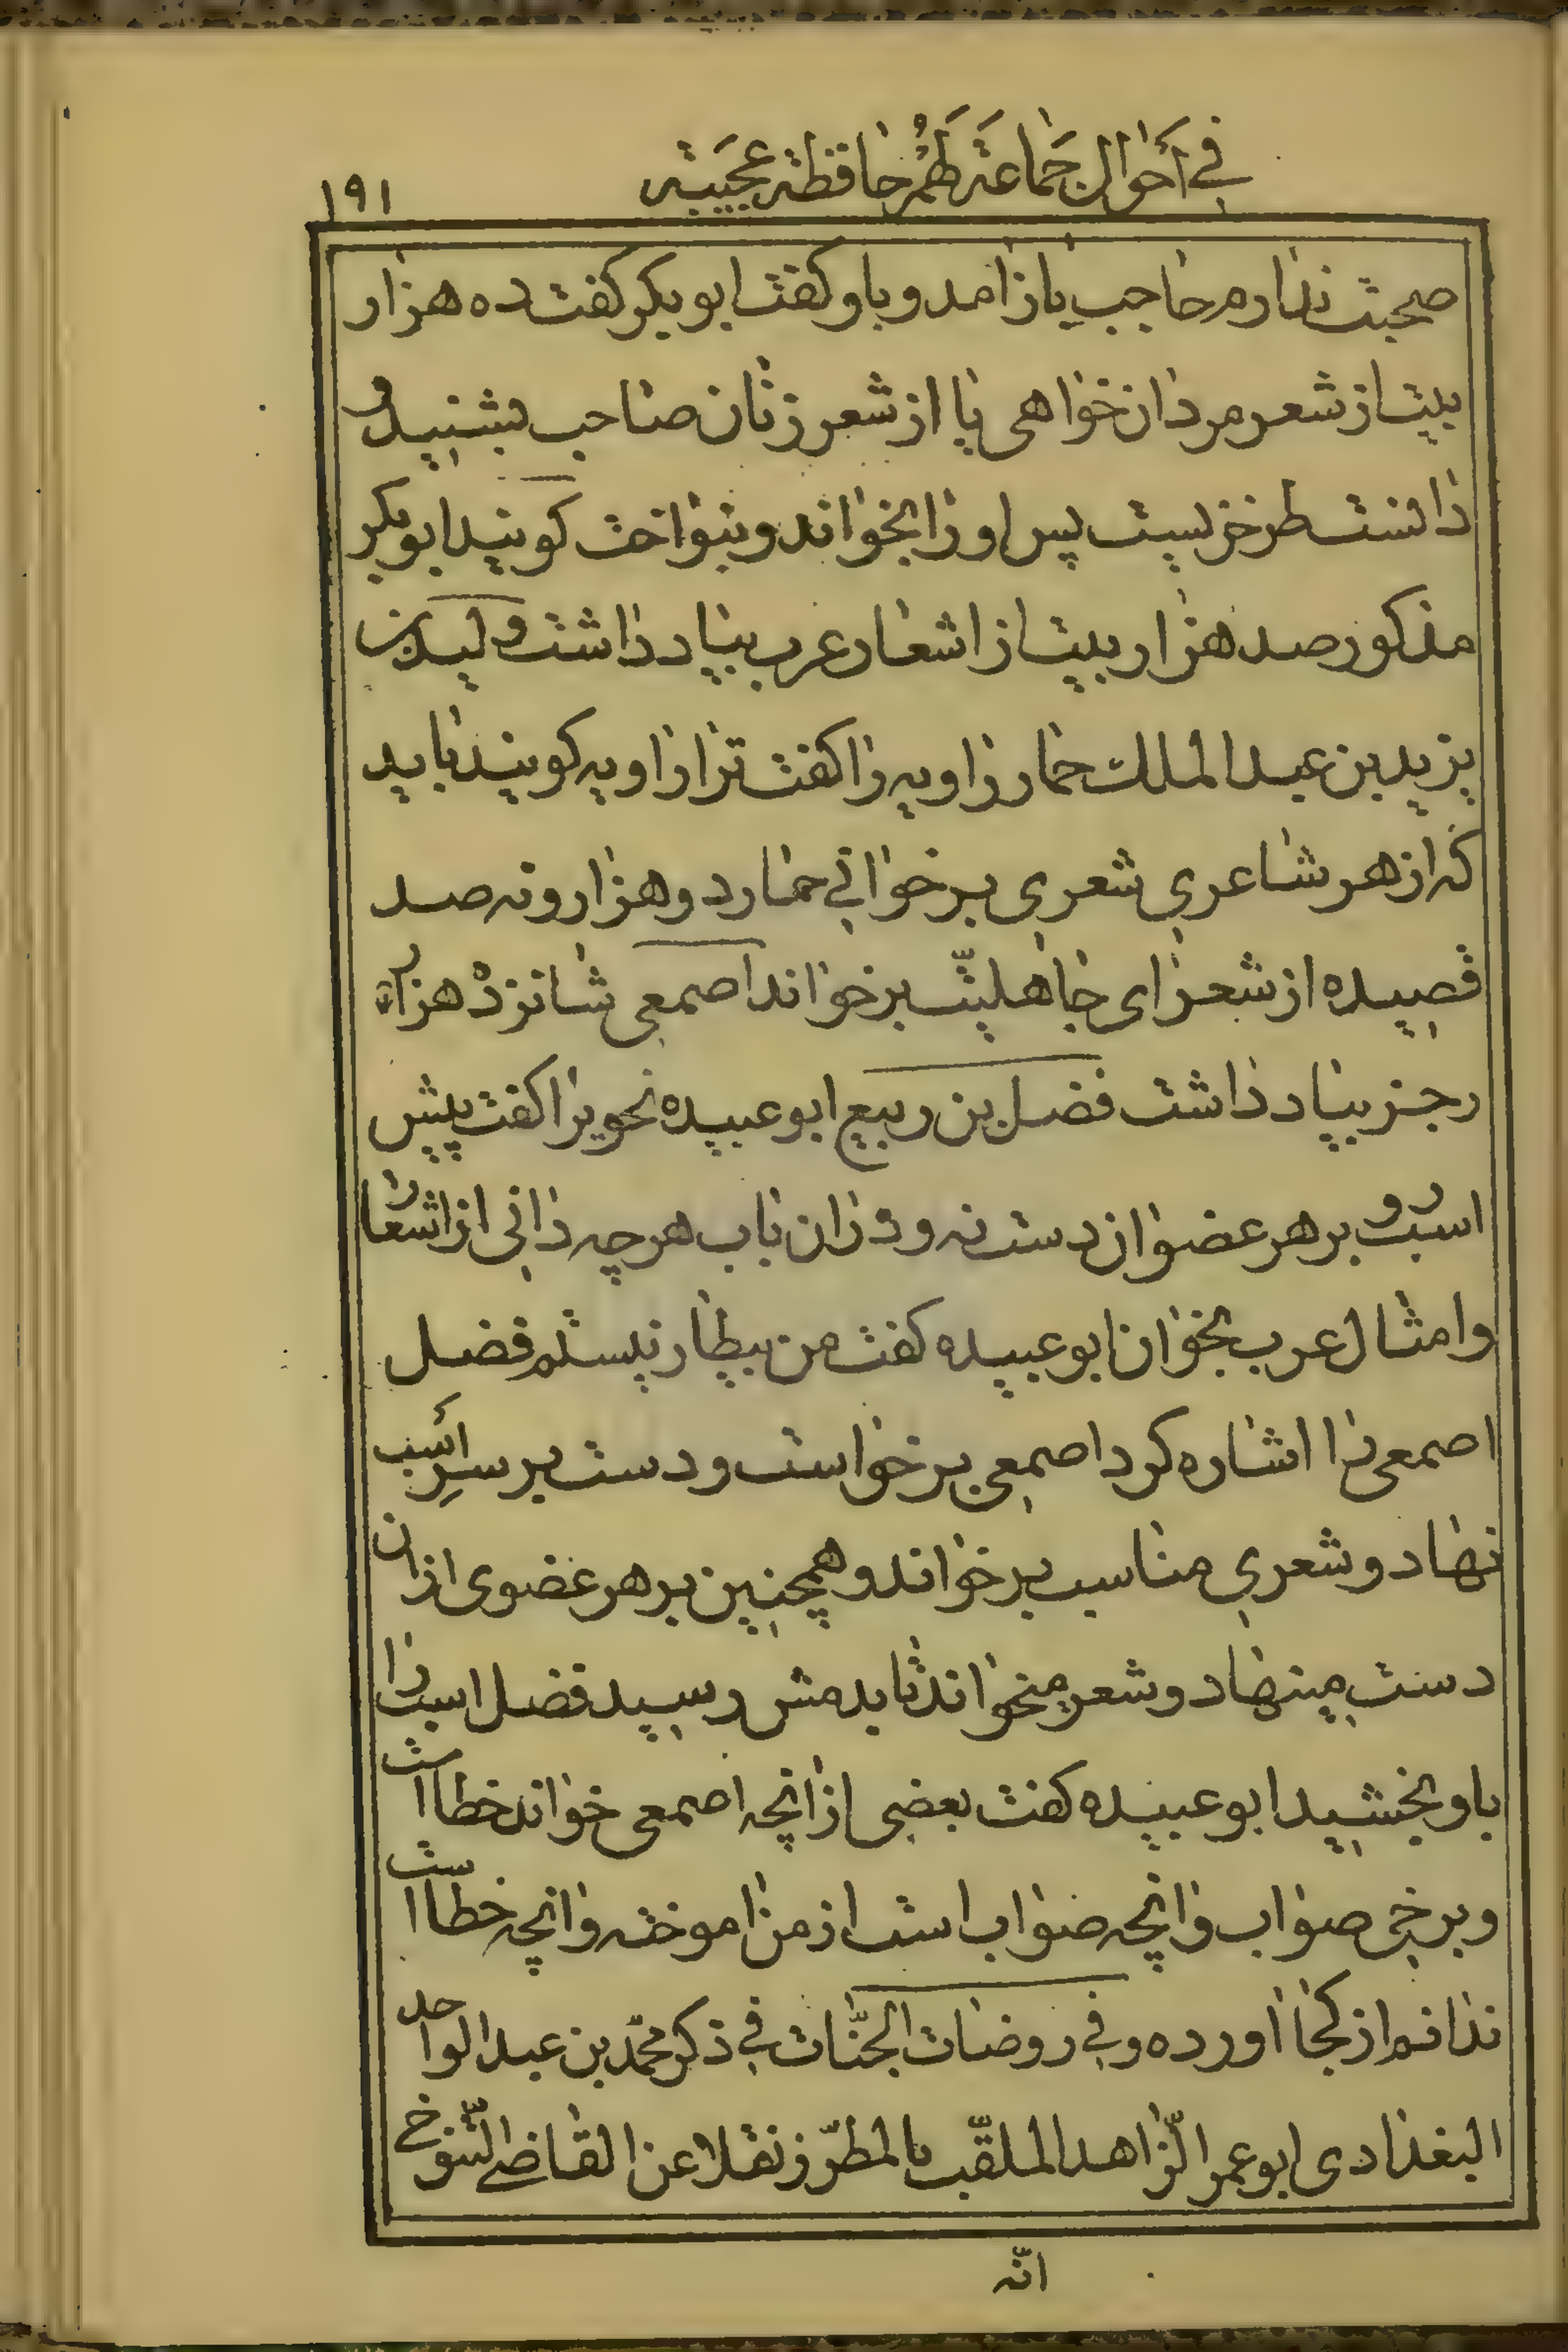 في أحوال جماعة لهم حافظة عجيبة
١٩١
صحبت ندارم حاجب باز امد و باو کفت ابو بکر کفت ده هزار
بیت از شعر مردان خواهی یا از شعر زنان صاحب بشنید و
دانست طرخزیست پس او را بخواند و بنواخت کویند ابو بکر
مذکور صد هزار بیت از اشعار عرب بیاد داشت ولید بن
یزید بن عبد الملک حماد راویه را کفت ترا راویه کویند باید
که از هر شاعری شعری برخوانی حماد دو هزار و نه صد
قصیده از شعرای جاهلیّت برخواند اصمعی شانزده هزار
رجز بیاد داشت فضل بن ربیع ابو عبیده نحویرا کفت پیش
اسب رو و بر هر عضو ان دست نه و در ان باب هر چه دانی از اشعار
و امثال عرب بخوان ابو عبیده کفت من بیطار نیستم فضل
اصمعی را اشاره کرد اصمعی برخواست و دست بر سر اسب
نهاد و شعری مناسب برخواند و همچنین بر هر عضوی از ان
دست مینهاد و شعر میخواند تا بدمش رسید فضل اسب را
باو بخشید ابو عبیده کفت بعضی از انچه اصمعی خواند خطا است
و برخی صواب و انچه صواب است از من اموخته و انچه خطا است
ندانم از کجا اورده و في روضات الجنّات في ذکر محمّد بن عبد الواحد
البغدادی ابو عمر الزّاهد الملقّب بالمطرّز نقلا عن القاضي التّنوخي
انّه